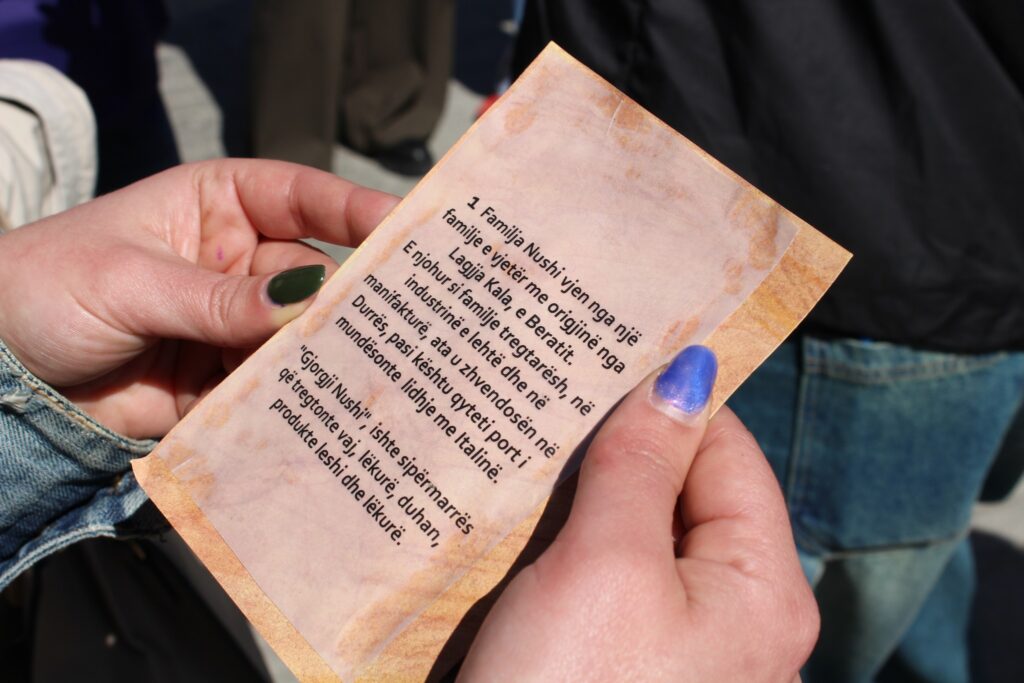 1 Familja Nushi vjen nga një
familje e vjetër me origjinë nga
Lagjja Kala, e Beratit.
E njohur si familje tregtarësh, në
industrinë e lehtë dhe në
manifakturë, ata u zhvendosën në
Durrës, pasi kështu qyteti port i
mundësonte lidhje me Italinë.
"Gjorgji Nushi", ishte sipërmarrës
që tregtonte vaj, lëkurë, duhan,
produkte leshi dhe lëkurë.